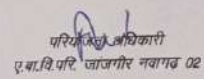 परियोजना अधिकारी
ए.बा.वि.परि. जांजगीर नवागढ 02